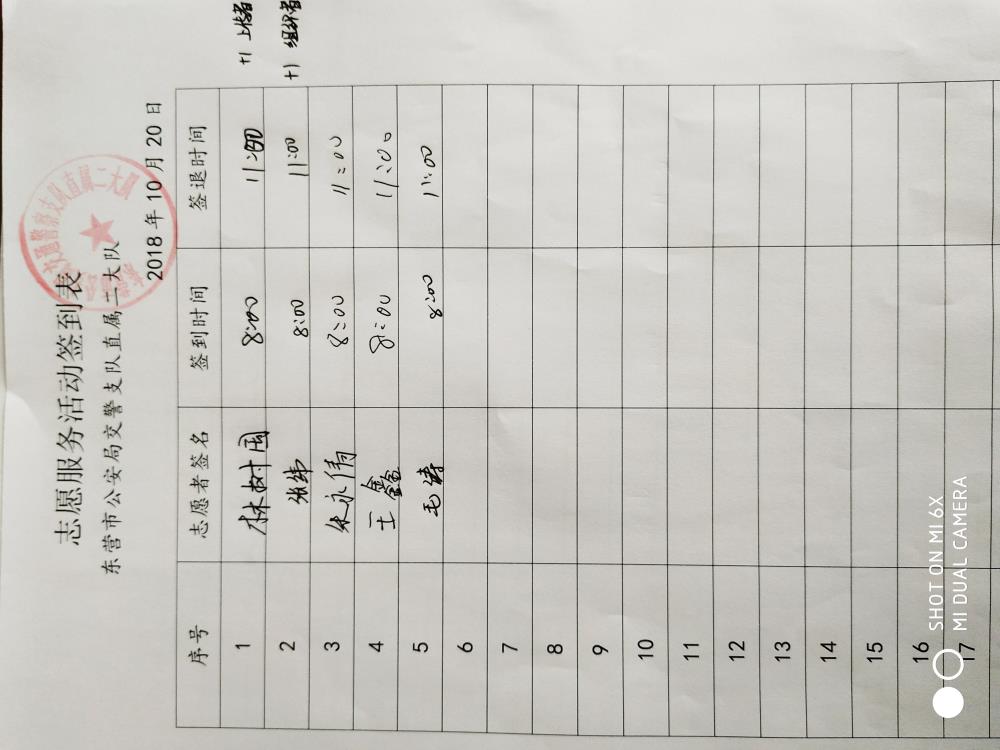 志愿服务活动签到表
东营市公安局交警支队直属二大队
2018 年 10 月 20 日
序号 志愿者签名 签到时间 签退时间
1 林树国 8:00 11:00 +1 上传者
2 张纬 8:00 11:00 +1 组织者
3 朱永倩 8:00 11:00
4 王鑫 8:00 11:00
5 毛涛 8:00 11:00
6
7
8
9
10
11
12
13
14
15
16
17
SHOT ON MI 6X
MI DUAL CAMERA